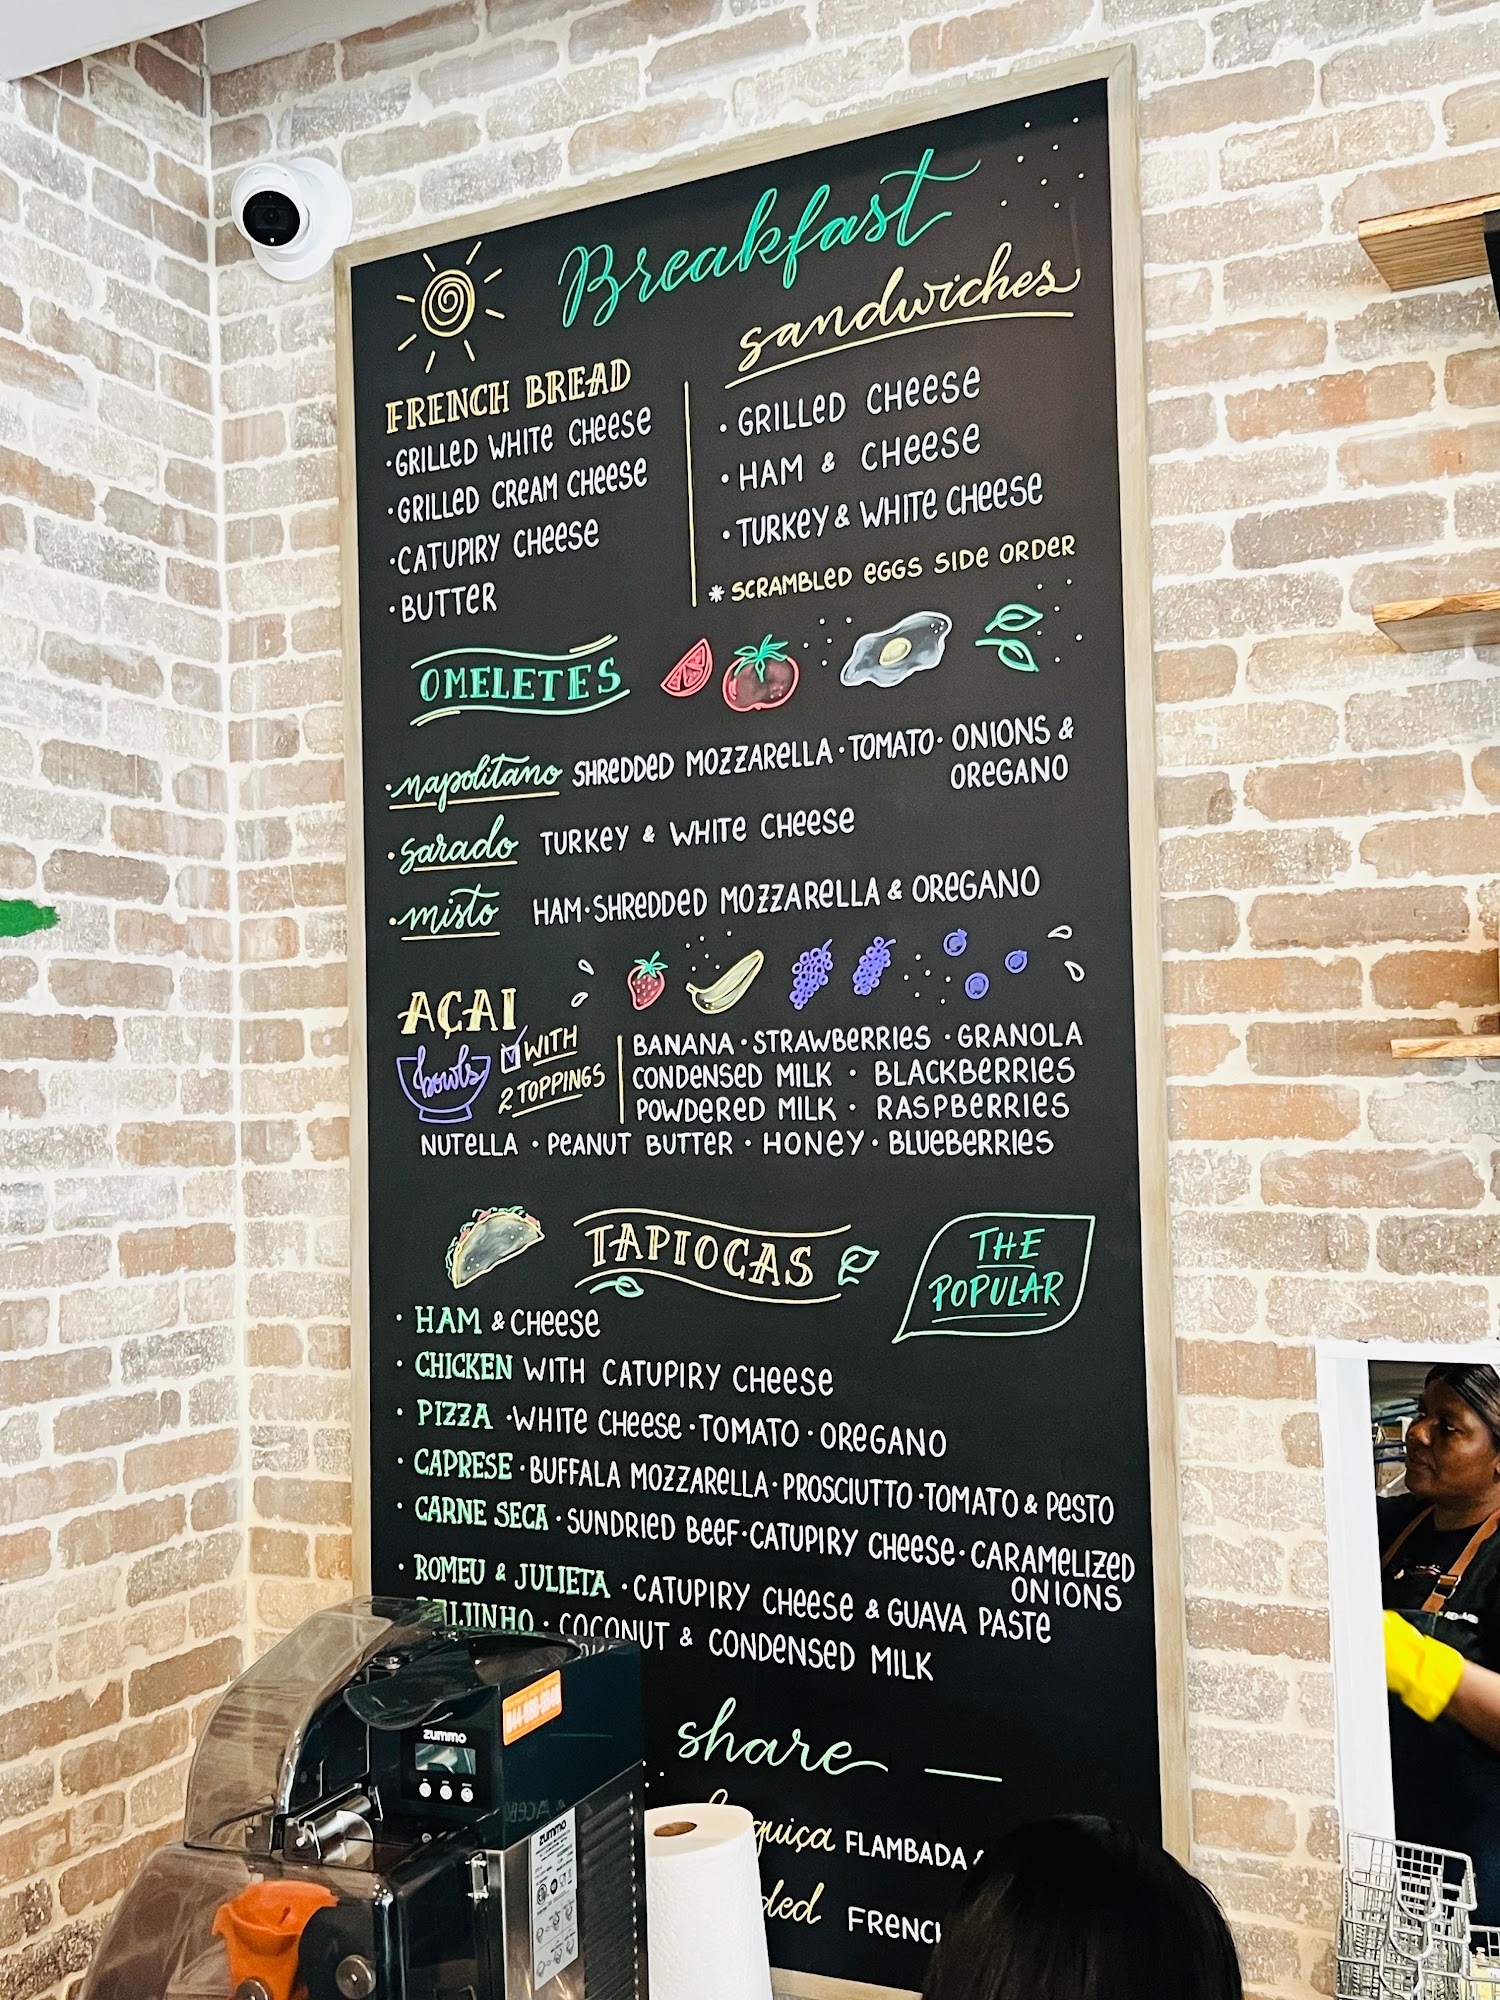 Breakfast
FRENCH BREAD
·GRILLED WHITE CHEESE
·GRILLED CREAM CHEESE
·CATUPIRY CHEESE
·BUTTER
sandwiches
· GRILLED CHEESE
· HAM & CHEESE
· TURKEY & WHITE CHEESE
* SCRAMBLED EGGS SIDE ORDER
OMELETES
·napolitano SHREDDED MOZZARELLA · TOMATO · ONIONS &
OREGANO
·sarado TURKEY & WHITE CHEESE
·misto HAM · SHREDDED MOZZARELLA & OREGANO
AÇAI
bowls
WITH
2 TOPPINGS
BANANA · STRAWBERRIES · GRANOLA
CONDENSED MILK · BLACKBERRIES
POWDERED MILK · RASPBERRIES
NUTELLA · PEANUT BUTTER · HONEY · BLUEBERRIES
TAPIOCAS
THE
POPULAR
· HAM & CHEESE
· CHICKEN WITH CATUPIRY CHEESE
· PIZZA · WHITE CHEESE · TOMATO · OREGANO
· CAPRESE · BUFFALA MOZZARELLA · PROSCIUTTO · TOMATO & PESTO
· CARNE SECA · SUNDRIED BEEF · CATUPIRY CHEESE · CARAMELIZED
ONIONS
· ROMEU & JULIETA · CATUPIRY CHEESE & GUAVA PASTE
BEIJINHO · COCONUT & CONDENSED MILK
share
FLAMBADA
zummo
zummo